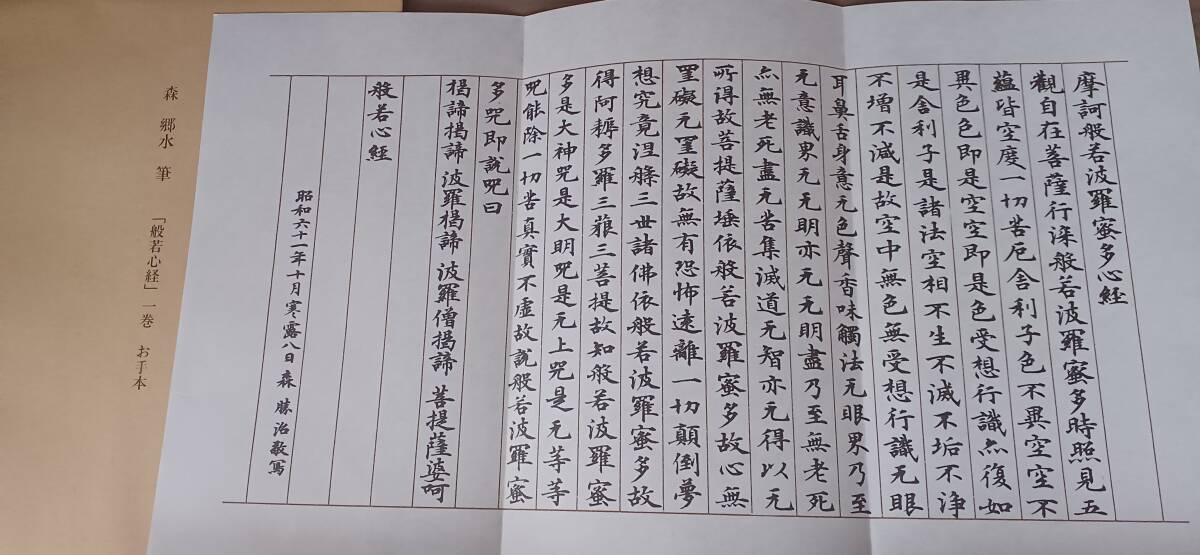 摩訶般若波羅蜜多心経
觀自在菩薩行深般若波羅蜜多時照見五
蘊皆空度一切苦厄舎利子色不異空空不
異色色即是空空即是色受想行識亦復如
是舎利子是諸法空相不生不滅不垢不浄
不増不減是故空中無色無受想行識无眼
耳鼻舌身意无色聲香味觸法无眼界乃至
无意識界无无明亦无无明盡乃至無老死
亦無老死盡无苦集滅道无智亦无得以无
所得故菩提薩埵依般若波羅蜜多故心無
罣礙无罣礙故無有恐怖遠離一切顛倒夢
想究竟涅槃三世諸佛依般若波羅蜜多故
得阿耨多羅三藐三菩提故知般若波羅蜜
多是大神咒是大明咒是无上咒是无等等
咒能除一切苦真實不虚故説般若波羅蜜
多咒即説咒曰
揭諦揭諦 波羅揭諦 波羅僧揭諦 菩提薩婆呵
般若心経
昭和六十一年十月寒露八日 森 勝治敬寫
森 郷水 筆 「般若心経」一巻 お手本